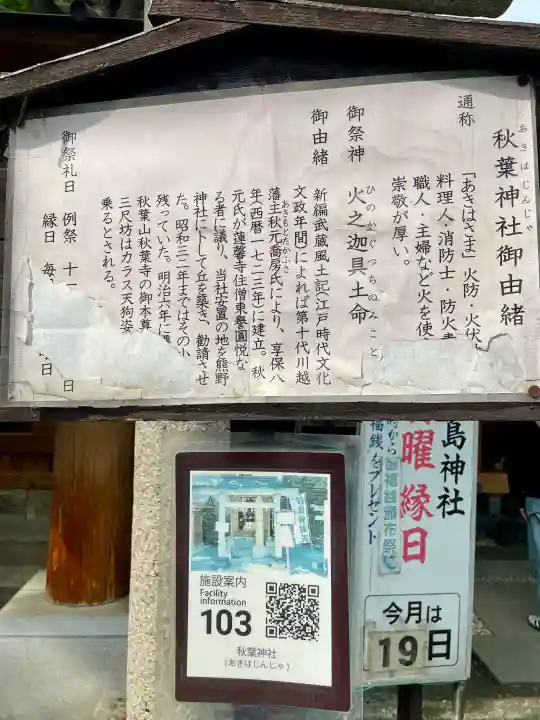 秋葉神社御由緒
あきはじんじゃ
通称
「あきはさま」火防・火伏
料理人・消防士・防火
職人・主婦など火を使
崇敬が厚い。
御祭神 火之迦具土命
ひのかぐつちのみこと
御由緒
新編武蔵風土記(江戸時代文化
文政年間)によれば第十代川越
藩主秋元喬房氏により、享保八
あきもとたかふさ
年(西暦一七二三年)に建立。秋
元氏が蓮馨寺住僧東譽圓悦な
る者に議り、当社安置の地を熊野
神社に卜して丘を築き、勧請させ
た。昭和三二年まではその小
残っていた。明治六年に
秋葉山秋葉寺の御本尊
三尺坊はカラス天狗姿
乗るとされる。
御祭礼日 例祭 十一 日
縁日 毎 日
施設案内
Facility
information
103
秋葉神社
(あきはじんじゃ)
島神社
曜縁日
福銭をプレゼント
今月は
19日